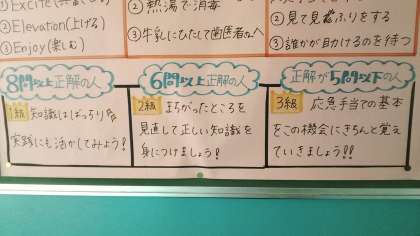 ①Excite(
②Elevation(上げる)
③Enjoy(楽しむ)
②熱湯で消毒
③牛乳にひたして歯医者さんへ
②見て見ぬふりをする
③誰かが助けるのを待つ
8問以上正解の人
1級 知識はばっちり
実践にも活かしてみよう!
6問以上正解の人
2級 まちがったところを
見直して正しい知識を
身につけましょう!
正解が5問以下の人
3級 応急手当ての基本
をこの機会にきちんと覚え
ていきましょう!!